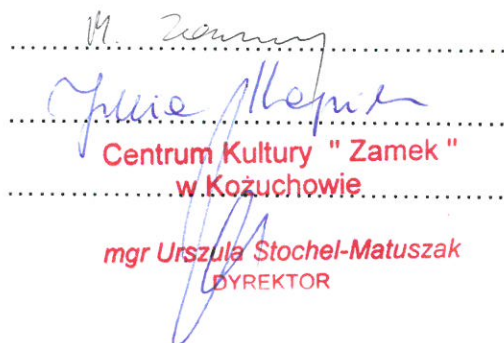 M.
Centrum Kultury " Zamek "
w Kożuchowie
mgr Urszula Stochel-Matuszak
DYREKTOR